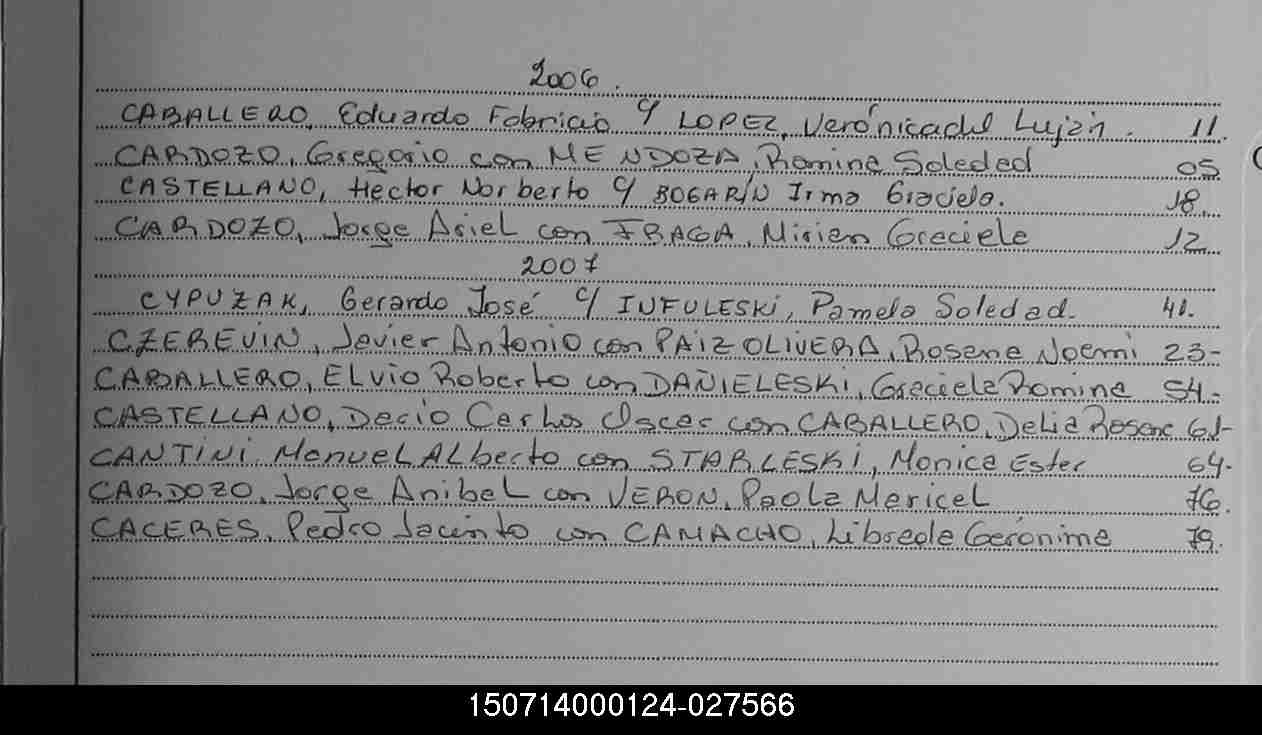 2006.
CABALLERO, Eduardo Fabricio c/ LOPEZ, Verónica del Luján. 11.
CARDOZO, Gregorio con MENDOZA, Romina Soledad 05
CASTELLANO, Hector Norberto c/ BOGARÍN Irma Graciela. 18.
CARDOZO, Jorge Ariel con FRAGA, Mirian Graciela 12
2007
CYPUZAK, Gerardo José c/ INFULESKI, Pamela Soledad. 41.
CZEREVIN, Javier Antonio con PAIZ OLIVERA, Rosana Noemi 23-
CABALLERO, ELvio Roberto con DAÑIELESKI, Graciela Romina 54-
CASTELLANO, Dario Carlos Oscar con CABALLERO, Delia Rosana 61-
CANTINI, Manuel ALberto con STARLESKI, Monica Ester 64-
CARDOZO, Jorge Anibal con VERON, Paola Maricel 76.
CACERES, Pedro Jacinto con CAMACHO, Librada Gerónima 79.
150714000124-027566